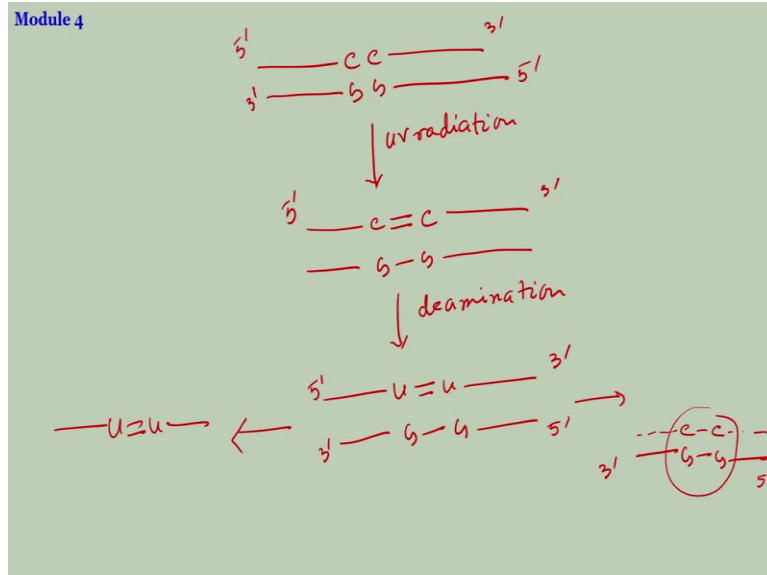 Module 4
5' CC 3'
3' GG 5'
uv radiation
5' C=C 3'
G-G
deamination
5' U=U 3'
3' G-G 5'
U=U
C-C
3' G-G 5